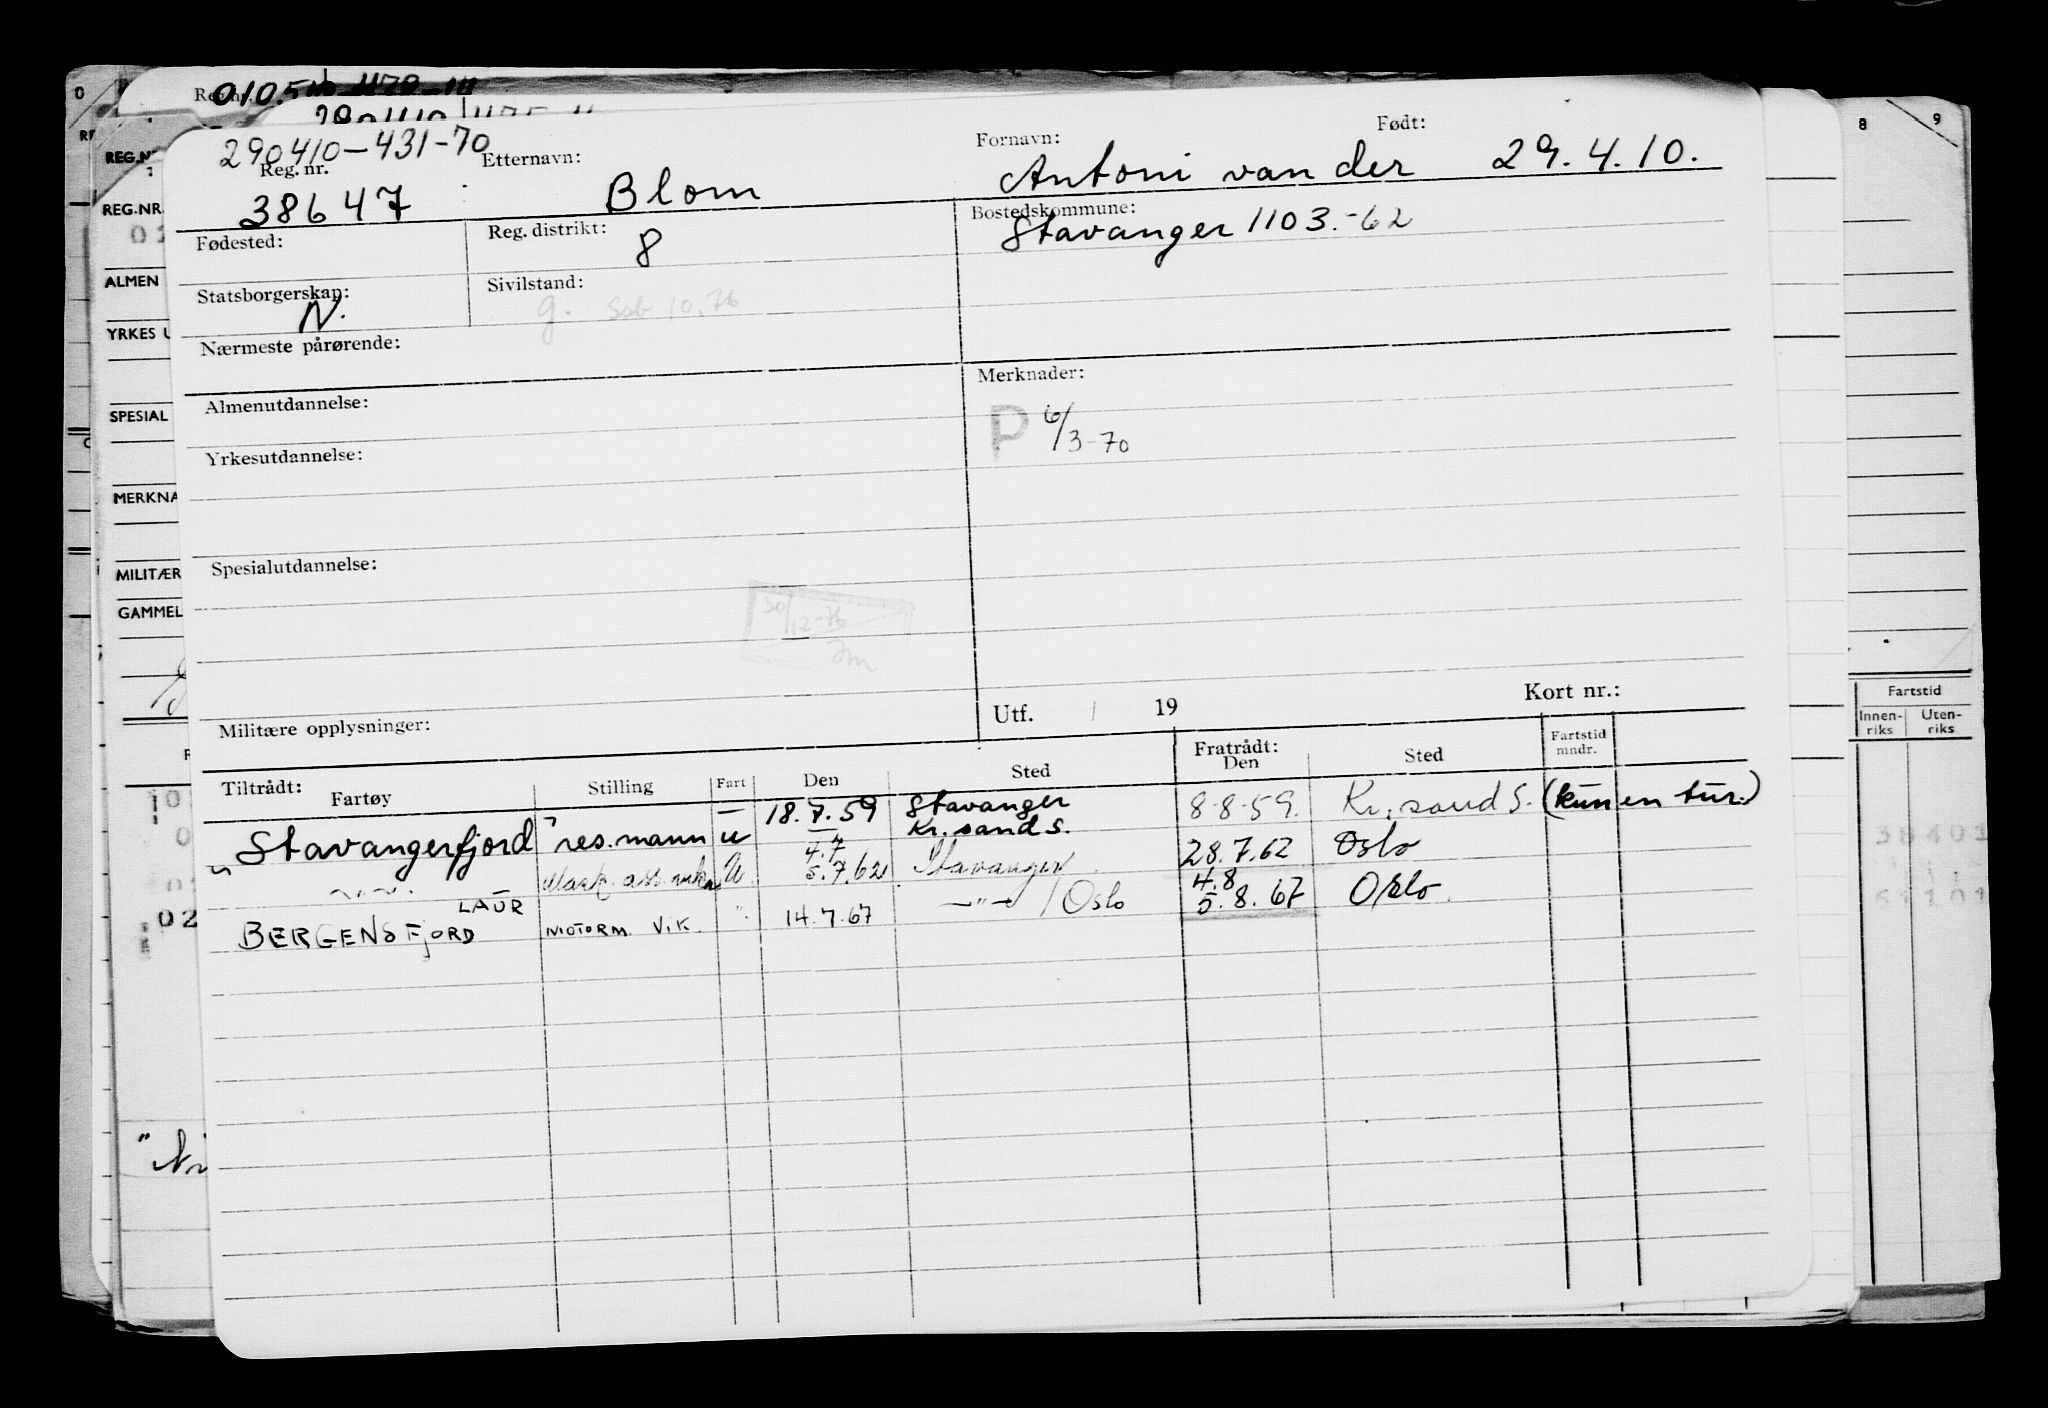 Reg. nr. 010.5
290410
290410-431-70
Reg. nr. 38647
Etternavn: Blom
Fornavn: Antoni van der
Født: 29.4.10.
Fødested:
Reg. distrikt: 8
Bostedskommune: Stavanger 1103.-62
Statsborgerskap: N.
Sivilstand: g. Ssb 10.76
Nærmeste pårørende:
Almenutdannelse:
Merknader:
P 6/3-70
Yrkesutdannelse:
Spesialutdannelse:
30/12-76
Militære opplysninger:
Utf. / 19
Kort nr.:
Tiltrådt: Fartøy
Stilling
Fart
Den
Sted
Fratrådt: Den
Sted
Fartstid mndr.
Stavangerfjord res.mann u 18.7.59 Stavanger 8-8-59. Kr.sand S. (kun en tur.)
Kr.sand S.
" - " - U. 4.7 5.7.62 Stavanger 28.7.62 Oslo
LAUR
BERGENSFJORD MOTORM. VIK. " 14.7.67 -"- / Oslo 4.8 5.8.67 Oslo.
REG.NR.
ALMEN
YRKES U
SPESIAL
MERKNA
MILITÆR
GAMMEL
8
9
Fartstid
Innen-riks
Uten-riks
02